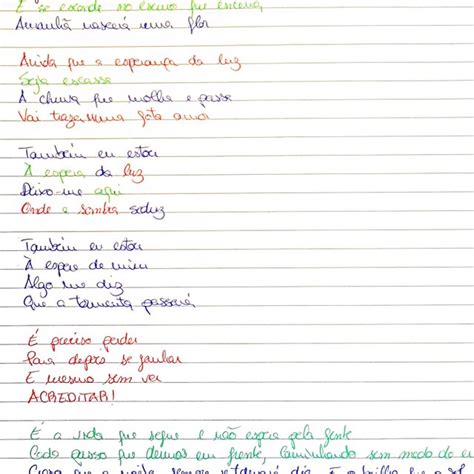 E se esconde no escuro que encerra
Amanhã nascerá uma flor
Ainda que a esperança da luz
Seja escassa
A chuva que molha e passa
Vai trazer numa gota amor
Também eu estou
À espera da luz
Deixo-me aqui
Onde a sombra seduz
Também eu estou
À espera de mim
Algo me diz
Que a tormenta passará
É preciso perder
Para depois se ganhar
E mesmo sem ver
ACREDITAR!
É a vida que segue e não espera pela gente
Cada passo que demos em frente, caminhando sem medo de e
Creio que a noite sempre se tornará dia E o brilho que o sol